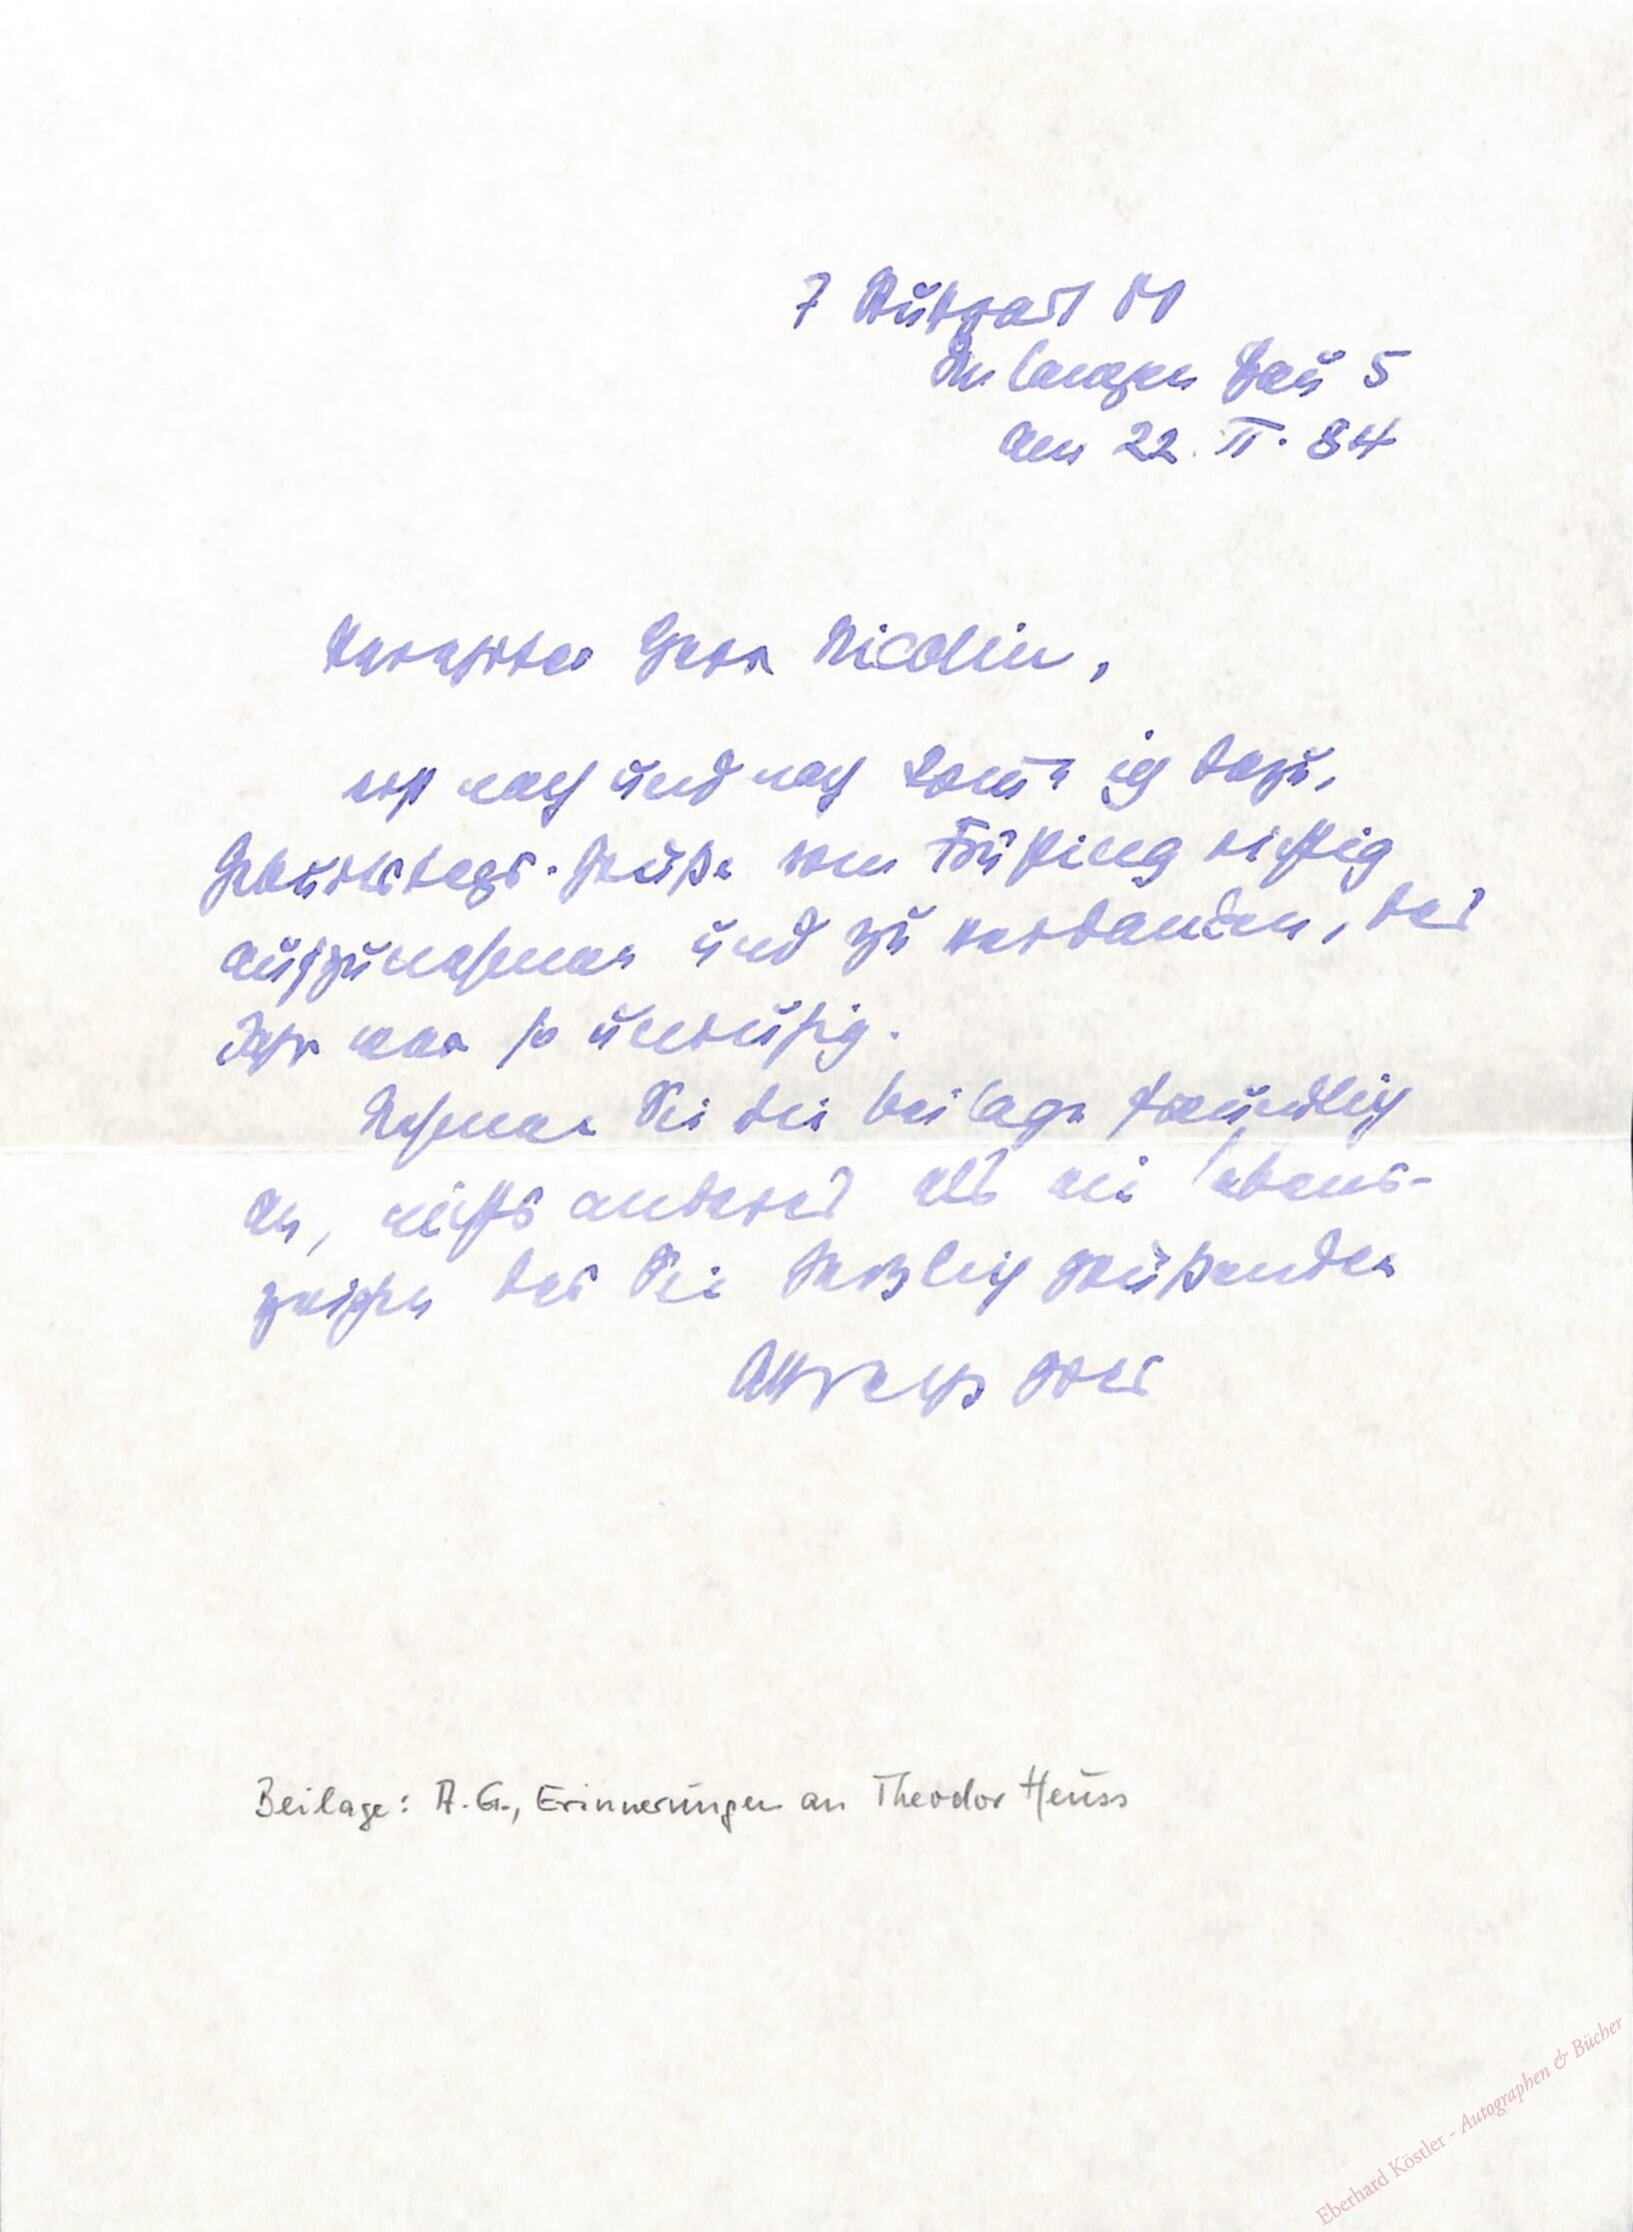 7 Stuttgart 81
Im langen Hau 5
den 22. II. 84
Verehrter Herr Nicolin,
erst nach und nach komme ich dazu,
Geburtstags-Grüße vom Frühling richtig
aufzunehmen und zu verdanken, das
Jahr war so unruhig.
Nehmen Sie die Beilage freundlich
an, nichts anderes als ein Lebens-
zeichen des Sie herzlich grüßenden
Albrecht Goes
Beilage: A.G., Erinnerungen an Theodor Heuss
Eberhard Köstler - Autographen & Bücher